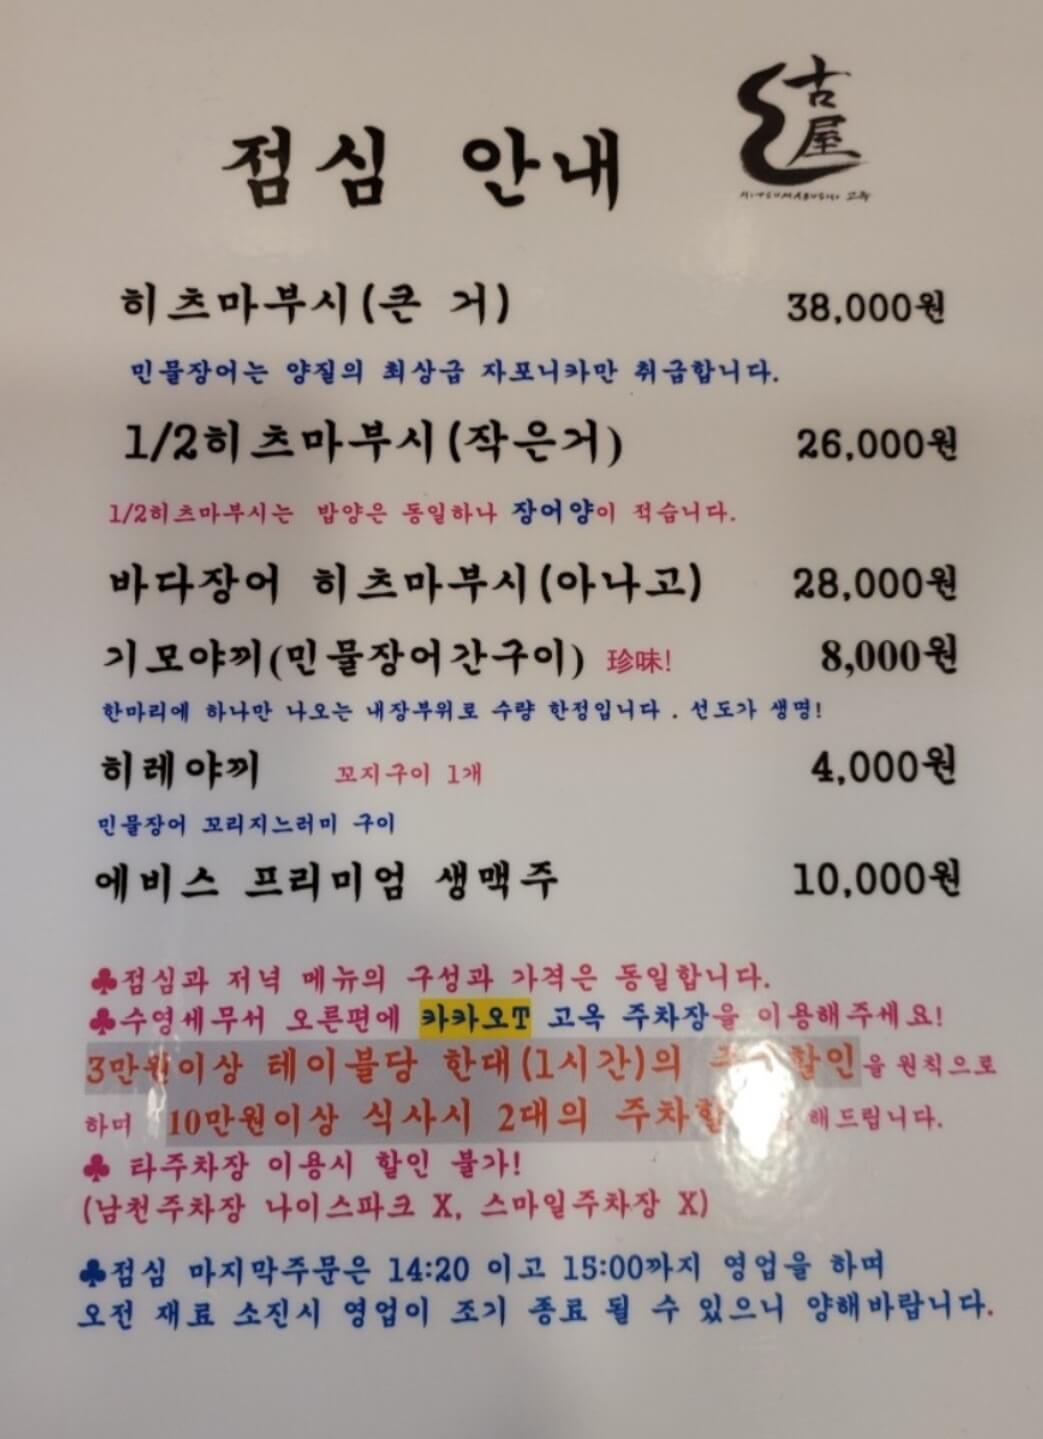 古屋
HITSUMABUSHI 고옥
점심 안내
히츠마부시(큰 거) 38,000원
민물장어는 양질의 최상급 자포니카만 취급합니다.
1/2히츠마부시(작은거) 26,000원
1/2히츠마부시는 밥양은 동일하나 장어양이 적습니다.
바다장어 히츠마부시(아나고) 28,000원
기모야끼(민물장어간구이) 珍味! 8,000원
한마리에 하나만 나오는 내장부위로 수량 한정입니다. 선도가 생명!
히레야끼 꼬지구이 1개 4,000원
민물장어 꼬리지느러미 구이
에비스 프리미엄 생맥주 10,000원
♣점심과 저녁 메뉴의 구성과 가격은 동일합니다.
♣수영세무서 오른편에 카카오T 고옥 주차장을 이용해주세요!
3만원이상 테이블당 한대(1시간)의 할인을 원칙으로
하며 10만원이상 식사시 2대의 해드립니다.
♣ 타주차장 이용시 할인 불가!
(남천주차장 나이스파크 X, 스마일주차장 X)
♣점심 마지막주문은 14:20 이고 15:00까지 영업을 하며
오전 재료 소진시 영업이 조기 종료 될 수 있으니 양해바랍니다.